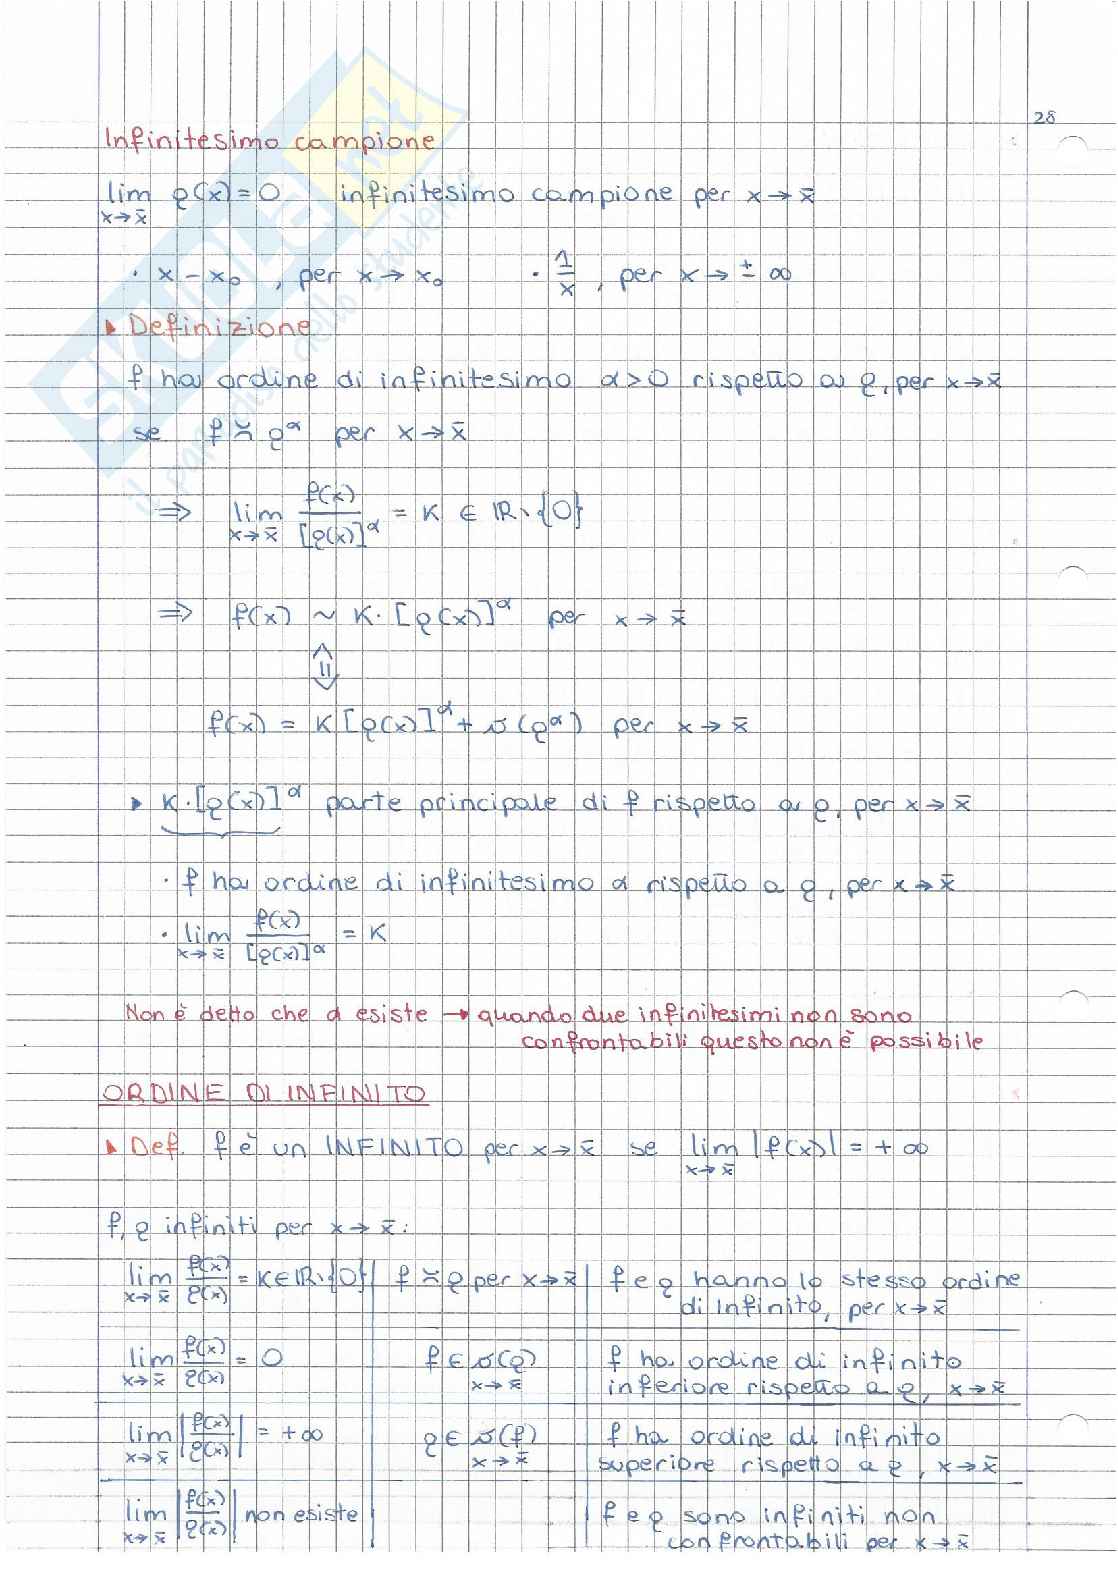 28
Infinitesimo campione
lim g(x) = 0 infinitesimo campione per x → x̄
x→x̄
· x - x₀ , per x → x₀ · 1/x , per x → ± ∞
▸ Definizione
f ha ordine di infinitesimo α > 0 rispetto a g, per x → x̄
se f ≍ g^α per x → x̄
⇒ lim f(x)/[g(x)]^α = K ∈ ℝ∖{0}
x→x̄
⇒ f(x) ~ K·[g(x)]^α per x → x̄
⇕
f(x) = K[g(x)]^α + o(g^α) per x → x̄
▸ K·[g(x)]^α parte principale di f rispetto a g, per x → x̄
· f ha ordine di infinitesimo α rispetto a g, per x → x̄
· lim f(x)/[g(x)]^α = K
x→x̄
Non è detto che α esiste → quando due infinitesimi non sono
confrontabili questo non è possibile
ORDINE DI INFINITO
▸ Def. f è un INFINITO per x → x̄ se lim |f(x)| = + ∞
x→x̄
f, g infiniti per x → x̄ :
lim f(x)/g(x) = K ∈ ℝ∖{0} f ≍ g per x → x̄ f e g hanno lo stesso ordine
x→x̄ di infinito, per x → x̄
lim f(x)/g(x) = 0 f ∈ o(g) f ha ordine di infinito
x→x̄ x→x̄ inferiore rispetto a g, x → x̄
lim |f(x)/g(x)| = +∞ g ∈ o(f) f ha ordine di infinito
x→x̄ x→x̄ superiore rispetto a g, x → x̄
lim |f(x)/g(x)| non esiste f e g sono infiniti non
x→x̄ confrontabili per x → x̄
SKUOLA.net
il paradiso dello studente